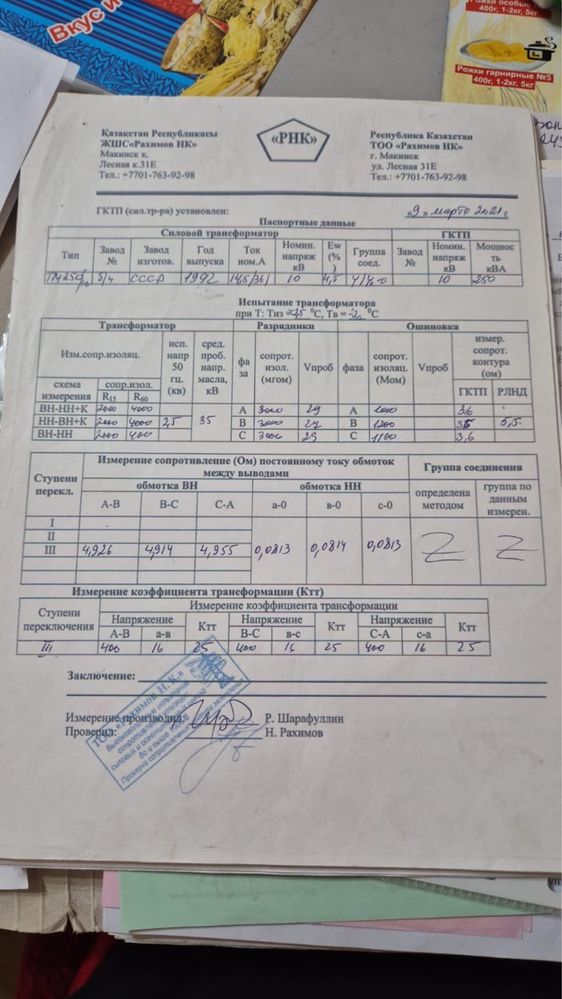 Вкус и
Рожки особые
400г, 1-2кг, 5кг
Рожки гарнирные №5
400г, 1-2кг, 5кг
Қазақстан Республикасы
ЖШС«Рахимов НК»
Макинск қ.
Лесная к.31Е
Тел.: +7701-763-92-98
«РНК»
Республика Казахстан
ТОО «Рахимов НК»
г. Макинск
ул. Лесная 31Е
Тел.: +7701-763-92-98
ГКТП (сил.тр-ра) установлен:
«9» марта 2021г.
Паспортные данные
Силовой трансформатор ГКТП
Тип Завод № Завод изготов. Год выпуска Ток ном.А Номин. напряж кВ Ew (%) Группа соед. Завод № Номин. напряж кВ Мощность кВА
б/н СССР 1992 14,5/361 10 4,5 У/Ун-0 10 250
Испытание трансформатора
при Т: Тиз °С, Тв = -2 °С
Трансформатор Разрядники Ошиновка
Изм.сопр.изоляц. исп. напр 50 гц. (кв) сред. проб. напр. масла, кВ фаза сопрот. изол. (мгом) Vпроб фаза сопрот. изоляц (Мом) Vпроб измер. сопрот. контура (ом)
схема измерения сопр.изол. R15 R60 ГКТП РЛНД
ВН-НН+К 2000 4000 А 3000 29 А 1000 3,6
НН-ВН+К 2000 4000 25 35 В 3000 27 В 1200 3,5 5,5
ВН-НН 2000 С 3000 С 1100 3,6
Ступени перекл. Измерение сопротивление (Ом) постоянному току обмоток между выводами Группа соединения
обмотка ВН обмотка НН определена методом группа по данным измерен.
А-В В-С С-А а-0 в-0 с-0
I
II
III 4,926 4,914 4,955 0,0813 0,0814 0,0813 Z Z
Измерение коэффициента трансформации (Ктт)
Ступени переключения Измерение коэффициента трансформации
Напряжение Ктт Напряжение Ктт Напряжение Ктт
А-В а-в В-С в-с С-А с-а
III 400 16 25 400 16 25 400 16 25
Заключение:
Измерение производил: Р. Шарафуллин
Проверил: Н. Рахимов
ТОО «Рахимов Н.К.»